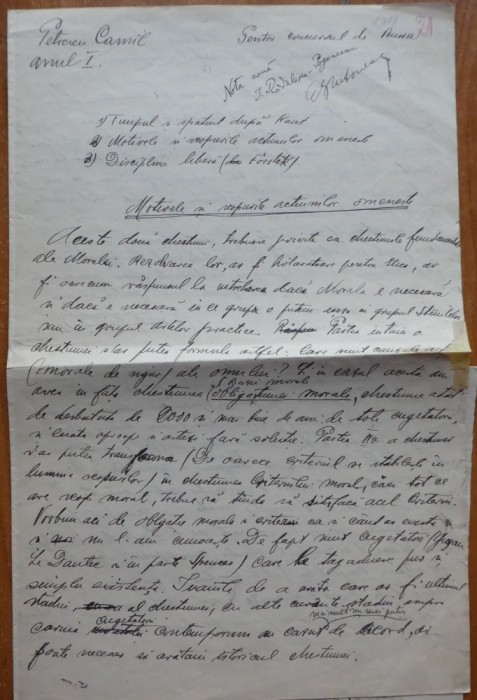 Petrescu Camil
anul I.
Pentru concursul de bursă
21
Nota nouă
I. Rădulescu-Pogoneanu
1) Timpul și spațiul după Kant
2) Motivele și scopurile acțiunilor omenești
3) Disciplina liberă (la Förster)
Motivele și scopurile acțiunilor omenești
Aceste două chestiuni, trebuesc privite ca chestiunile fundamentale
ale Moralei. Rezolvarea lor, ar fi hotărâtoare pentru Etică, ar
fi oarecum răspunsul la dacă Morala e necesară
și dacă e necesară în ce grupă o putem în grupul științelor
sau în grupul artelor practice. Partea întâia a
chestiunei s'ar putea formula astfel: Care sunt cauzele act.
(morale de sigur) ale omului? Și în cazul acesta am
avea în față chestiunea obligațiunei morale, chestiune atât
de desbătută de 2000 și mai bine de ani de toți cugetătorii,
și rămasă aproape și astăzi fără soluție. Partea II-a a chestiunei
s'ar putea transforma (De oarece criteriul se stabilește în
lumina scopurilor) în chestiunea Criteriului moral, căci tot ce
are scop moral, trebue să tindă să satisfacă acel criteriu.
Vorbim aci de obligația morală și criteriu ca și când ar exista
și noi nu l-am cunoaște. De fapt sunt cugetători (Guyau,
Le Dantec și în parte Spencer) care le tăgăduesc pur și
simplu existența. Înainte de a arăta care ar fi ultimul
stadiu al chestiunei, cu alte cuvinte stadiu asupra
căruia cugetătorii contemporani au căzut de acord, ar
fi poate necesar să arătăm istoricul chestiunei.